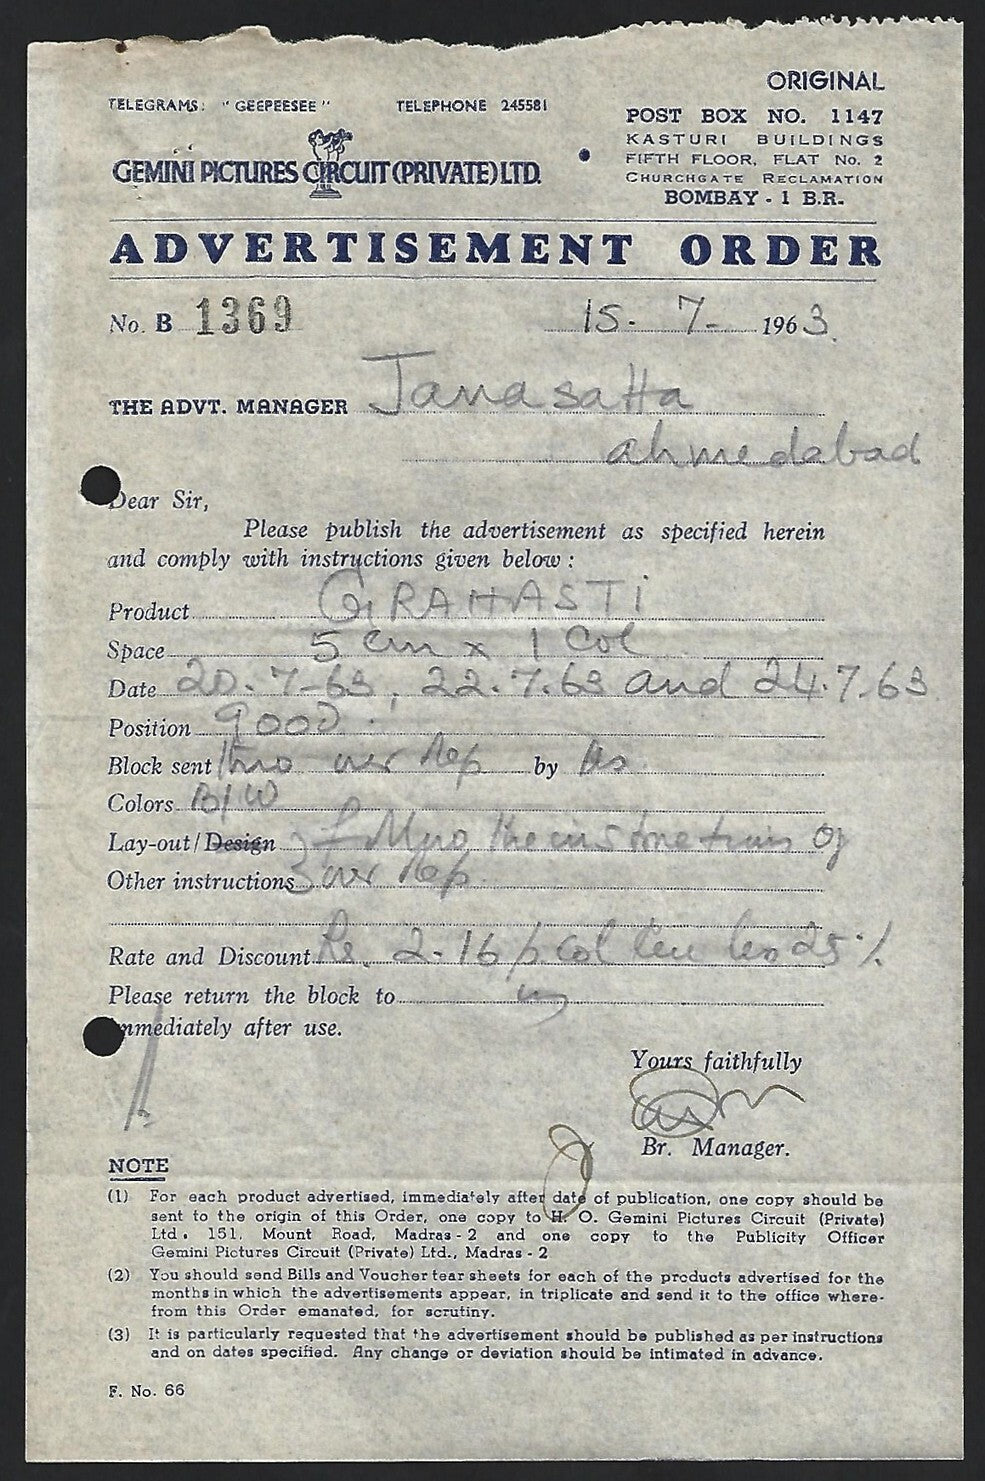 ORIGINAL
TELEGRAMS: "GEEPEESEE" TELEPHONE 245581
POST BOX NO. 1147
KASTURI BUILDINGS
FIFTH FLOOR, FLAT No. 2
CHURCHGATE RECLAMATION
BOMBAY - 1 B.R.
GEMINI PICTURES CIRCUIT (PRIVATE) LTD.
ADVERTISEMENT ORDER
No. B 1369 15-7-1963
THE ADVT. MANAGER Janasatta
ahmedabad
Dear Sir,
Please publish the advertisement as specified herein
and comply with instructions given below:
Product GRAHASTI
Space 5 cm x 1 Col
Date 20.7-63, 22.7.63 and 24.7.63
Position good
Block sent over Rep by
Colors B/W
Lay-out/Design of
Other instructions over Rep.
Rate and Discount Rs. 2-16 p col less 25%
Please return the block to
immediately after use.
Yours faithfully
Br. Manager.
NOTE
(1) For each product advertised, immediately after date of publication, one copy should be
sent to the origin of this Order, one copy to H. O. Gemini Pictures Circuit (Private)
Ltd. 151, Mount Road, Madras - 2 and one copy to the Publicity Officer
Gemini Pictures Circuit (Private) Ltd., Madras - 2
(2) You should send Bills and Voucher tear sheets for each of the products advertised for the
months in which the advertisements appear, in triplicate and send it to the office where-
from this Order emanated, for scrutiny.
(3) It is particularly requested that the advertisement should be published as per instructions
and on dates specified. Any change or deviation should be intimated in advance.
F. No. 66